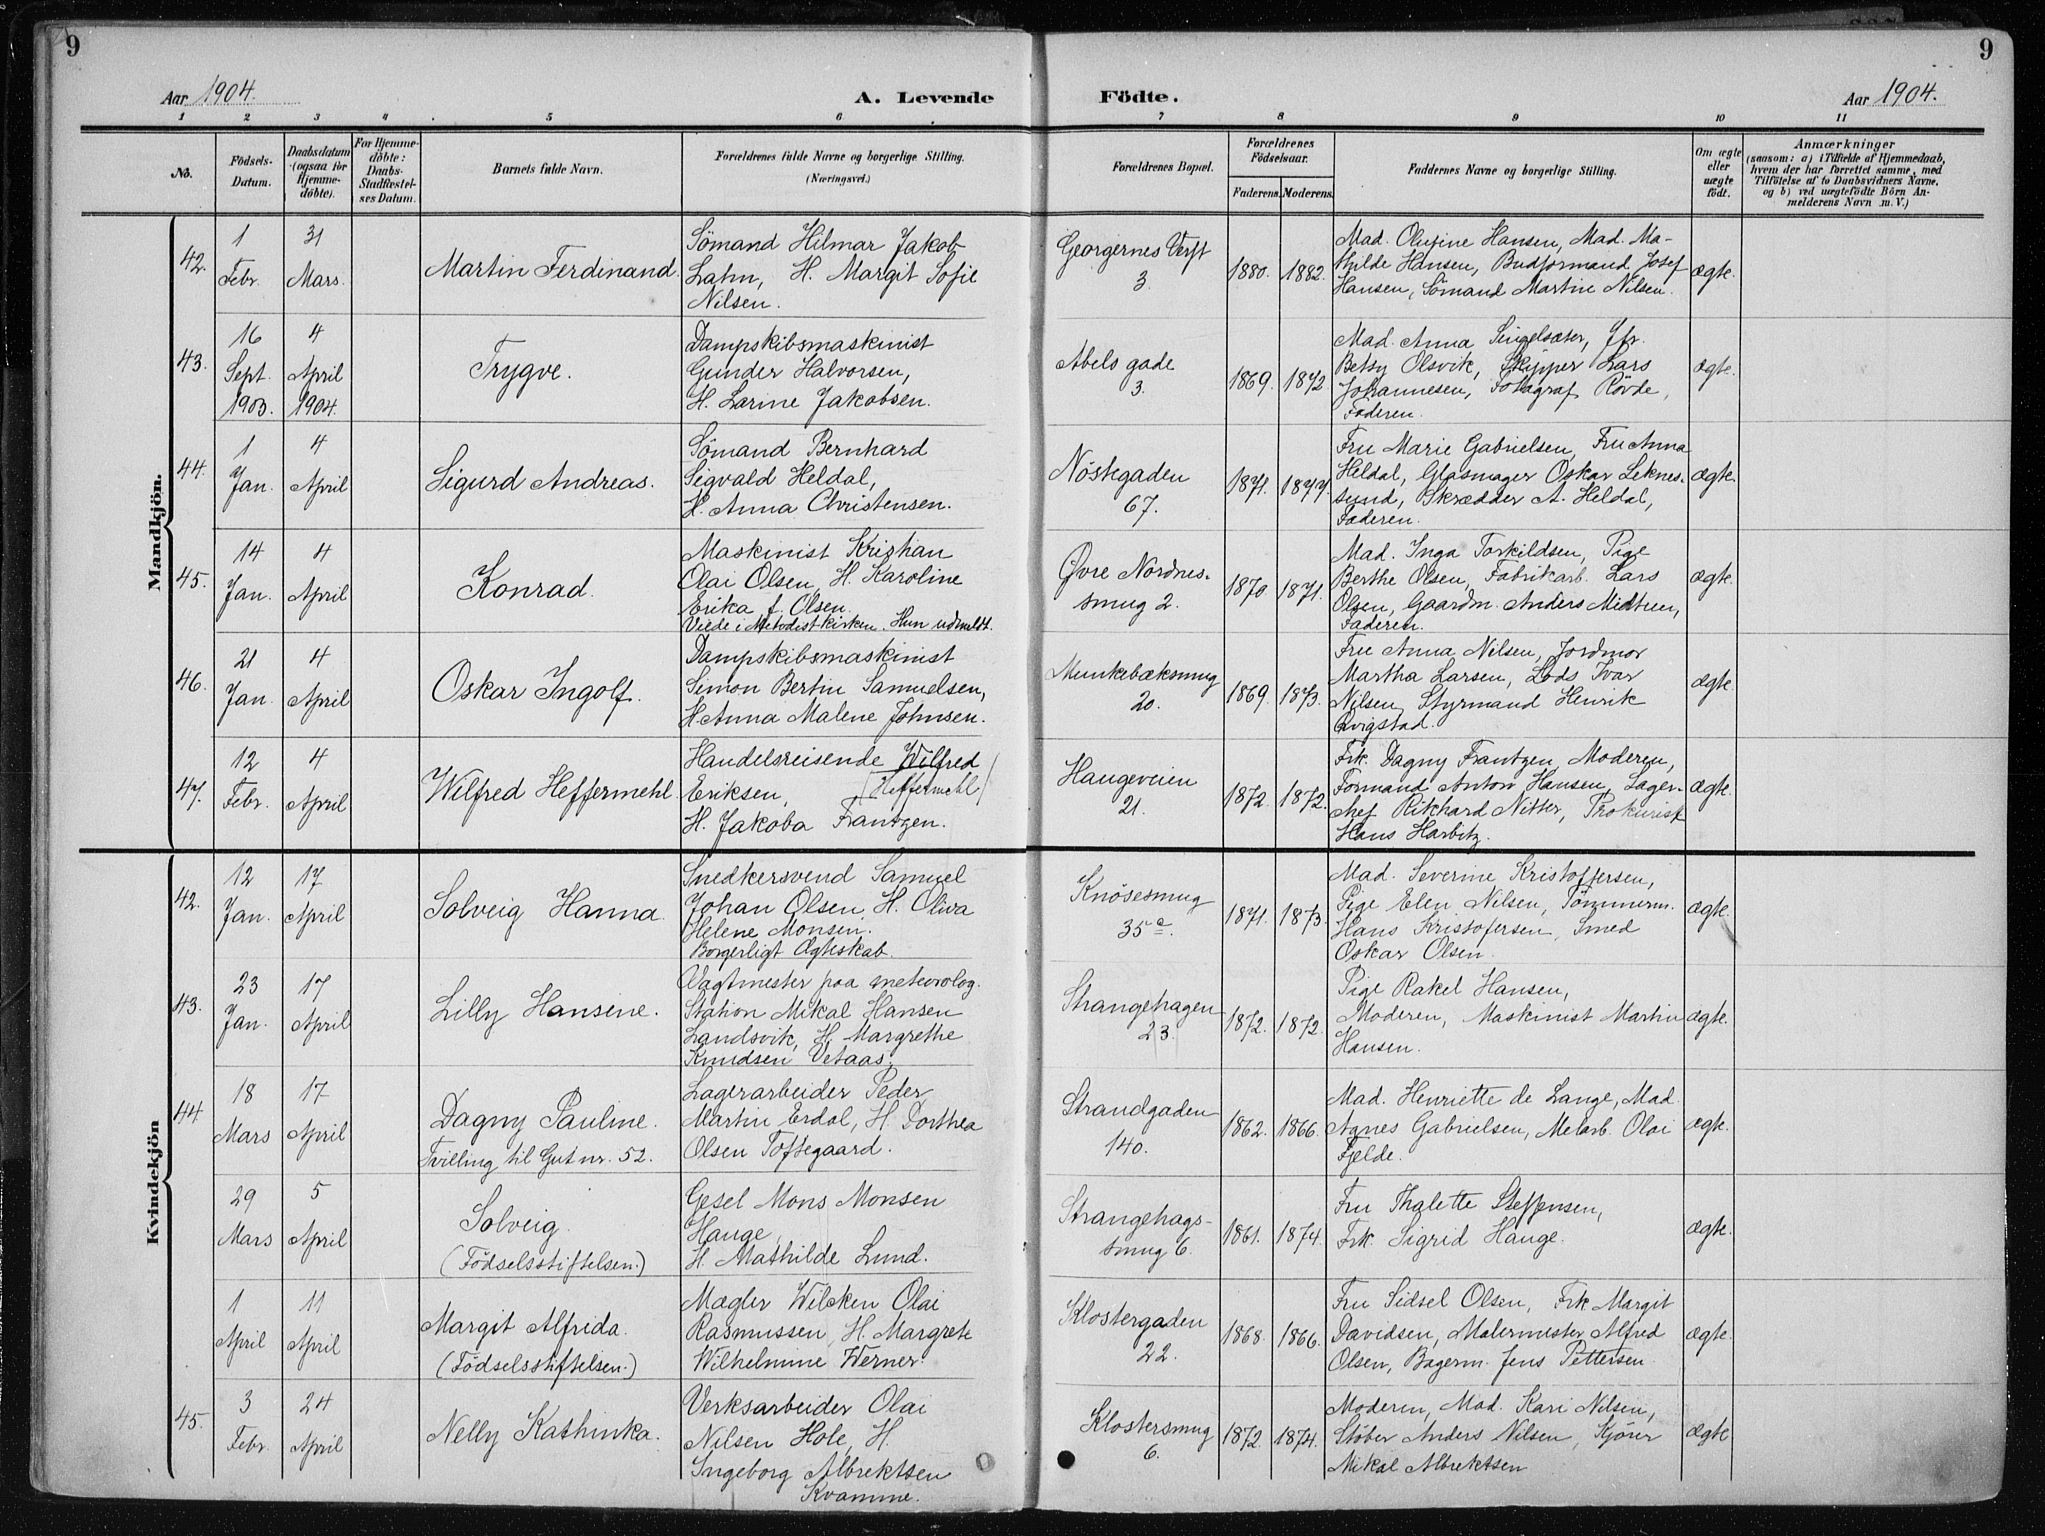 9
9
Aar 1904.
A. Levende
Födte.
Aar 1904.
1 2 3 4 5 6 7 8 9 10 11
No.
Födsels-
Datum.
Daabsdatum
(ogsaa for
Hjemme-
döbte).
For Hjemme-
döbte:
Daabs-
Stadfæstel-
ses Datum.
Barnets fulde Navn.
Forældrenes fulde Navne og borgerlige Stilling.
(Næringsvei.)
Forældrenes Bopæl.
Forældrenes
Födselsaar.
Faderens. Moderens.
Faddernes Navne og borgerlige Stilling.
Om ægte
eller
uægte
födt.
Anmærkninger
(saasom: a) i Tilfælde af Hjemmedaab,
hvem der har forrettet samme, med
Tilföielse af to Daabsvidners Navne,
og b) ved uægtefödte Börn An-
melderens Navn m. V.)
Mandkjön.
42.
1
Febr.
31
Mars.
Martin Ferdinand.
Sömand Hilmar Jakob
Lahn, H. Margit Sofie
Nilsen.
Georgernes Verft
3.
1880. 1882.
Mad. Olufine Hansen, Mad. Ma-
thilde Hansen, Budformand Josef
Hansen, Sömand Martin Nilsen.
ægte.
43.
16
Sept.
1903.
4
April
1904.
Trygve.
Dampskibsmaskinist
Gunder Halvorsen,
H. Larine Jakobsen.
Abels gade
3.
1869. 1872
Mad. Anna Singelsæter, Jfr.
Betsy Olsvik, Skipper Lars
Johannesen, Fotograf Rövde,
Faderen.
ægte.
44.
1
Jan.
4
April
Sigurd Andreas.
Sömand Bernhard
Sigvald Heldal,
H. Anna Christensen.
Nöstegaden
67.
1871. 1877.
Fru Marie Gabrielsen, Fru Anna
Heldal, Glasmager Oskar Leknes-
sund, Skrædder A. Heldal,
Faderen.
ægte.
45.
14
Jan.
4
April
Konrad.
Maskinist Kristian
Olai Olsen, H. Karoline
Erika f. Olsen.
Viede i Metodistkirken. Hun udmeldt.
Øvre Nordnes-
smug 2.
1870. 1871.
Mad. Inga Torkildsen, Pige
Berthe Olsen, Fabrikarb. Lars
Olsen, Gaardm. Anders Midtun,
Faderen.
ægte.
46.
21
Jan.
4
April
Oskar Ingolf.
Dampskibsmaskinist
Simon Bertin Samuelsen,
H. Anna Malene Johnsen.
Munkebæksmug
20.
1869. 1873.
Fru Anna Nilsen, Jordmor
Martha Larsen, Lods Ivar
Nilsen, Styrmand Henrik
Qvigstad.
ægte.
47.
12
Febr.
4
April
Wilfred Heffermehl.
Handelsreisende Wilfred
Eriksen, (Heffermehl)
H. Jakoba Frantzen.
Haugeveien
21.
1872. 1872.
Frk. Dagny Frantzen, Moderen,
Formand Anton Hansen, Lager-
chef Rikhard Nitter, Prokurist
Hans Harbitz.
ægte.
Kvindekjön
42.
12
Jan.
17
April
Solveig Hanna.
Snedkersvend Samuel
Johan Olsen, H. Oliva
Helene Monsen.
Borgerligt Ægteskab.
Knösesmug
35 a.
1871. 1873.
Mad. Severine Kristoffersen,
Pige Elen Nilsen, Tömmerm.
Hans Kristofersen, Smed
Oskar Olsen.
ægte.
43.
23
Jan.
17
April
Lilly Hansine.
Vagtmester paa meteorolog.
Station Mikal Hansen
Landsvik, H. Margrethe
Knudsen Vetaas.
Strangehagen
23.
1872. 1872.
Pige Rakel Hansen,
Moderen, Maskinist Martin
Hansen.
ægte.
44
18
Mars
17
April
Dagny Pauline.
Tvilling til Gut nr. 52.
Lagerarbeider Peder
Martin Erdal, H. Dorthea
Olsen Toftegaard.
Strandgaden
140.
1862. 1866.
Mad. Henriette de Lange, Mad.
Agnes Gabrielsen, Melarb. Olai
Fjelde.
ægte.
29
Mars
5
April
Solveig.
(Födselsstiftelsen.)
Gesel Mons Monsen
Hauge,
H. Mathilde Lund.
Strangehags-
smug 6.
1861. 1874.
Fru Thalette Steffensen,
Frk. Sigrid Hauge.
ægte.
1
April
11
April
Margit Alfrida.
(Födselsstiftelsen.)
Mægler Wilcken Olai
Rasmussen, H. Margrete
Wilhelmine Werner.
Klostergaden
22.
1868. 1866.
Fru Sidsel Olsen, Frk Margit
Davidsen, Malermester Alfred
Olsen, Bagerm. Jens Pettersen.
ægte.
45.
3
Febr.
24
April
Nelly Kathinka.
Verksarbeider Olai
Nilsen Hole, H.
Ingeborg Albrektsen
Kvamme.
Klostersmug
6.
1872 1874.
Moderen, Mad. Kari Nilsen,
Stöber Anders Nilsen, Kjörer
Mikal Albrektsen
ægte